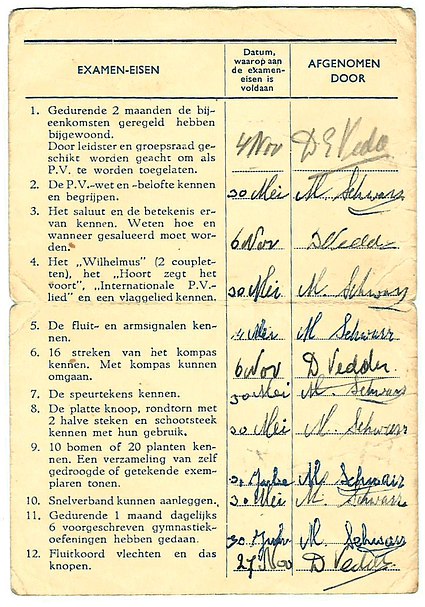 EXAMEN-EISEN
Datum,
waarop aan
de examen-
eisen is
voldaan
AFGENOMEN
DOOR
1. Gedurende 2 maanden de bij-
eenkomsten geregeld hebben
bijgewoond.
Door leidster en groepsraad ge-
schikt worden geacht om als
P.V. te worden toegelaten.
4 Nov
2. De P.V.-wet en -belofte kennen
en begrijpen.
30 Mei M. Schwarz
3. Het saluut en de betekenis er-
van kennen. Weten hoe en
wanneer gesalueerd moet wor-
den.
6 Nov D Vedder
4. Het „Wilhelmus" (2 couplet-
ten), het „Hoort zegt het
voort", „Internationale P.V.-
lied" en een vlaggelied kennen.
30 Mei M. Schwarz
5. De fluit- en armsignalen ken-
nen.
4 Mei M Schwarz
6. 16 streken van het kompas
kennen. Met kompas kunnen
omgaan.
6 Nov D Vedder.
7. De speurtekens kennen.
30 Mei M. Schwarz
8. De platte knoop, rondtorn met
2 halve steken en schootsteek
kennen met hun gebruik.
30 Mei M. Schwarz
9. 10 bomen of 20 planten ken-
nen. Een verzameling van zelf
gedroogde of getekende exem-
plaren tonen.
M. Schwarz
10. Snelverband kunnen aanleggen.
30 Mei M. Schwarz
11. Gedurende 1 maand dagelijks
6 voorgeschreven gymnastiek-
oefeningen hebben gedaan.
M. Schwarz
12. Fluitkoord vlechten en das
knopen.
27 Nov D Vedder